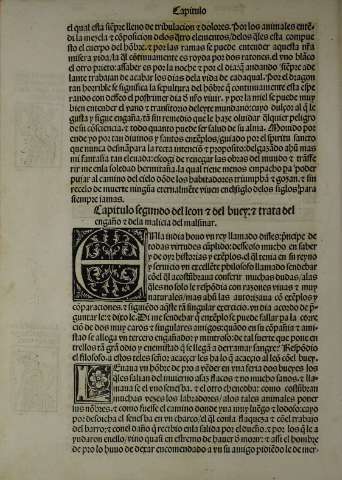 Capitulo
el qual esta siẽpre lleno de tribulacion z dolores. Por los animales entẽ-
di la mezcla z cõposicion delos q̃tro elementos/ delos q̃les esta compue
sto el cuerpo del hõbre: z por las ramas se puede entender aquesta nr̃a
misera vida/ la q̃l cõtinuamente es royda por dos ratones. el vno blãco
el otro prieto: assaber es por la noche z por el dia q̃ andando siẽpre ade
lante trabajan de acabar los dias dela vida de cadaqual. Por el dragon
tan horrible se significa la sepultura del hõbre q̃ continuamente esta espe
rando con desseo el postrimer dia d̃ nr̃o viuir. z por la miel se puede muy
bien entender el vano z transitorio deleyte mundano: cuyo dulçor al q̃ le
gusta z sigue engaña tã sin remedio que le haze oluidar q̃lquier peligro
de su cõsciencia, z todo quanto puede ser salud de su alma. Mouido por
ende yo por tan diuinos y santos exẽplos, guiado por el spiritu sancto
que nunca desmãpara la recta intencio z proposito: delgazado ahũ mas
mi fantasia tan eleuada: escogi de renegar las obras del mundo z trasfe
rirme enla soledad hermitaña. la qual tiene menos empacho pa poder
pujar al camino del cielo dõde los habitadores triumphã z gozan. z sin
recelo de muerte ningũa eternalmẽte viuen enel siglo delos siglos para
siempre jamas.
Capitulo segundo del leon z del buey: z trata del
engaño z dela malicia del malsinar.
EN la india houo vn rey llamado disles: prĩcipe de
todas virtudes cũplido: desseoso mucho en saber
y de oyr historias y exẽplos. el q̃l tenia en su reyno
y seruicio vn excellẽte philosofo llamado sendebar
cõel q̃l acostũbraua conferir muchas dudas/ alas
q̃les no solo le respõdia con razones viuas z muy
naturales/ mas ahũ las autorizaua cõ exẽplos y
cõparaciones. z siguiẽdo aq̃lle tã singular exercicio. vn dia acordo de p̃-
guntarle: z dixo le. Di me sendebar q̃ exẽplo se puede fallar pa la corre
ciõ de dos muy caros z singulares amigos: quãdo en su cõpañia z ami-
stad se allega vn tercero engañador y mintroso: de tal suerte que pone en
trellos tã grã odio y enemistad q̃ se llegã a derramar sangre? Respõdio
el filosofo. a estos tales señor acaeçer les ha lo q̃ acaecio al leõ cõel buey.
LLeuaua vn hõbre de pro a vẽder en vna feria dos bueyes los
q̃les salian del inuierno assaz flacos z no mucho sanos. z lla-
maua se el vno senesba, z el otro chenesba: como costũbran
muchas veces los labradores/ alos tales animales poner
les nõbres. z como fuesse el camino donde yua muy luẽgo z lodoso: cayo
por desdicha el senesba en vn charco. el q̃l con la flaqueza z cõel trabajo
del barro: z conel daño q̃ recibio enla salida por el lucho. z por los q̃ le a
yudaron enello/ vino quasi en estremo de hauer d̃ morir: z assi el hombre
de pro lo huuo de dexar encomendado a vn su amigo pidiẽdo le de mer-